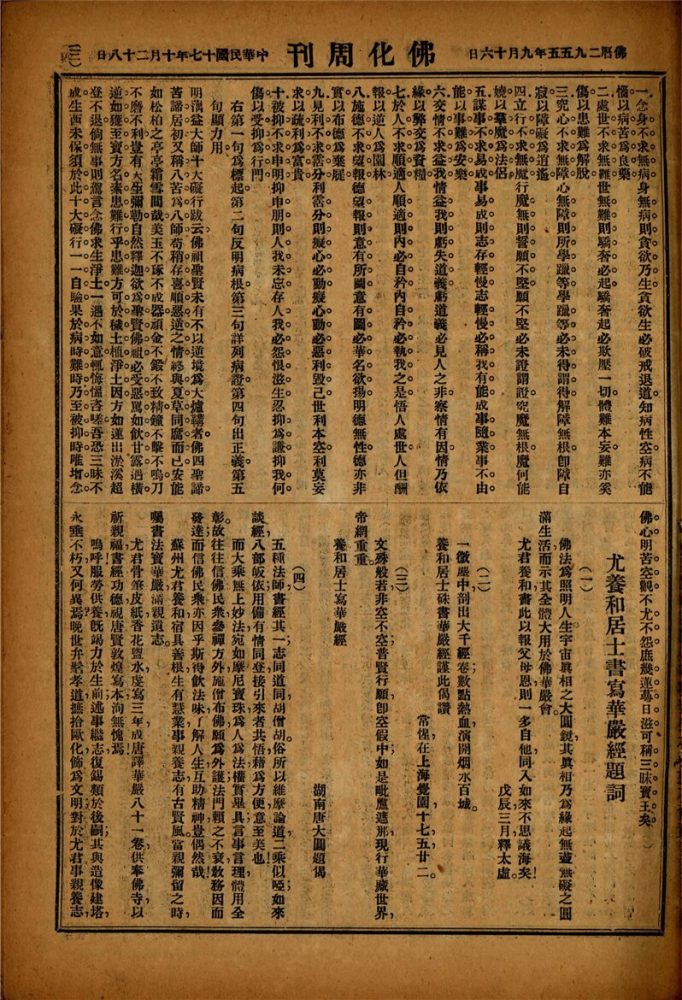 佛曆二九五五年九月十六日
佛化周刊
中華民國十七年十月二十八日
(三)
一念身不求無病身無病則貪欲乃生貪欲生必破戒退道知病性空病不能
惱以病苦為良藥
二處世不求無難世無難則驕奢必起驕奢起必欺壓一切體難本妄難亦奚
傷以患難為解脫
三究心不求無障心無障則所學躐等學躐等必未得謂得解障無根即障自
寂以障礙為逍遙
四立行不求無魔行無魔則誓願不堅願不堅必未證謂證究魔無根魔何能
嬈以羣魔為法侶
五謀事不求易成事易成則志存輕慢志輕慢必稱我有能成事隨業事不由
能以事難為安樂
六交情不求益我情益我則虧失道義虧道義必見人之非察情有因情乃依
緣以弊交為資糧
七於人不求順適人順適則內必自矜內自矜必執我之是悟人處世人但酬
報以逆人為園林
八施德不求望報德望報則意有所圖意有圖必華名欲揚明德無性德亦非
實以布德為棄屣
九見利不求霑分利霑分則癡心必動癡心動必惡利毀己世利本空利莫妄
求以疏利為富貴
十被抑不求申明抑申明則人我未忘存人我必怨恨滋生忍抑為謙抑我何
傷以受抑為行門
右第一句為標起第二句反明病根第三句詳列病證第四句出正義第五
句顯力用
明蕅益大師十大礙行跋云佛祖聖賢未有不以逆境為大爐鞴者佛四聖諦
苦諦居初又稱八苦為八師苟稍存喜順惡逆之情終與夏草同腐而已安能
如松柏之亭亭霜雪間哉美玉不琢不成器頑金不鍛不致精鐘不擊不鳴刀
不磨不利豈有天生彌勒自然釋迦欲為聖賢佛祖必受惡罵如飲甘露遇橫
逆如獲至寶方名素患難行乎患難方可於穢土植淨土因方如蓮出淤泥超
登不退倘無事則駕言念佛求生淨土一遇不如意輒悔懂吝嗟吾恐三昧不
成生西未保須於此十大礙行一一自驗果於病時難時乃至被抑時唯增念
佛心明苦空觀不尤不怨庶幾蓮萼日滋可稱三昧寶王矣
尤養和居士書寫華嚴經題詞
(一)
佛法為照明人生宇宙真相之大圓鏡其真相乃為緣起無盡無礙之圓
滿生活而示其全體大用於佛華嚴會
尤君養和書此以報父母恩則一多自他同入如來不思議海矣
戊辰三月釋太虛
(二)
一微塵中剖出大千經卷數點熱血演開烟水百城
養和居士以書華嚴經謹此偈讚
常惺在上海覺園十七五廿二
(三)
文殊般若非空不空普賢行願即空假中如是毗盧遮那現行華藏世界
帝網重重
養和居士寫華嚴經
湖南唐大圓題偈
(四)
五種法師書經其一志同道同胡僧胡俗所以維摩論道二乘似啞如來
談經八部皈依用備有情同登接引來者共悟藉為方便意至美也
而大乘無上妙法宛如摩尼寶珠為人為法權實畢具言事言理體用全
彰故往往信佛民衆參禪方外施僧布佛願為外護法門賴之不衰教務因而
發達而信佛民衆亦因乎斯得飲法味了解人生互助精神豈偶然哉
蘇州尤君養和宿具善根生有慧業事親養志有古賢風富親彌留之時
囑書法寶華嚴誦親遺志
尤君骨筆皮紙香花盥水虔寫三年成唐譯華嚴八十一卷供奉佛寺以
祈親福書經功德視唐賢敦煌寫本洵無愧焉
嗚呼服勞供養既竭力於生前述事繼志復錫類於後嗣其與造像建塔
永垂不朽又何異焉晚世弁髦孝道摭拾歐化飾為文明對於尤君事親養志